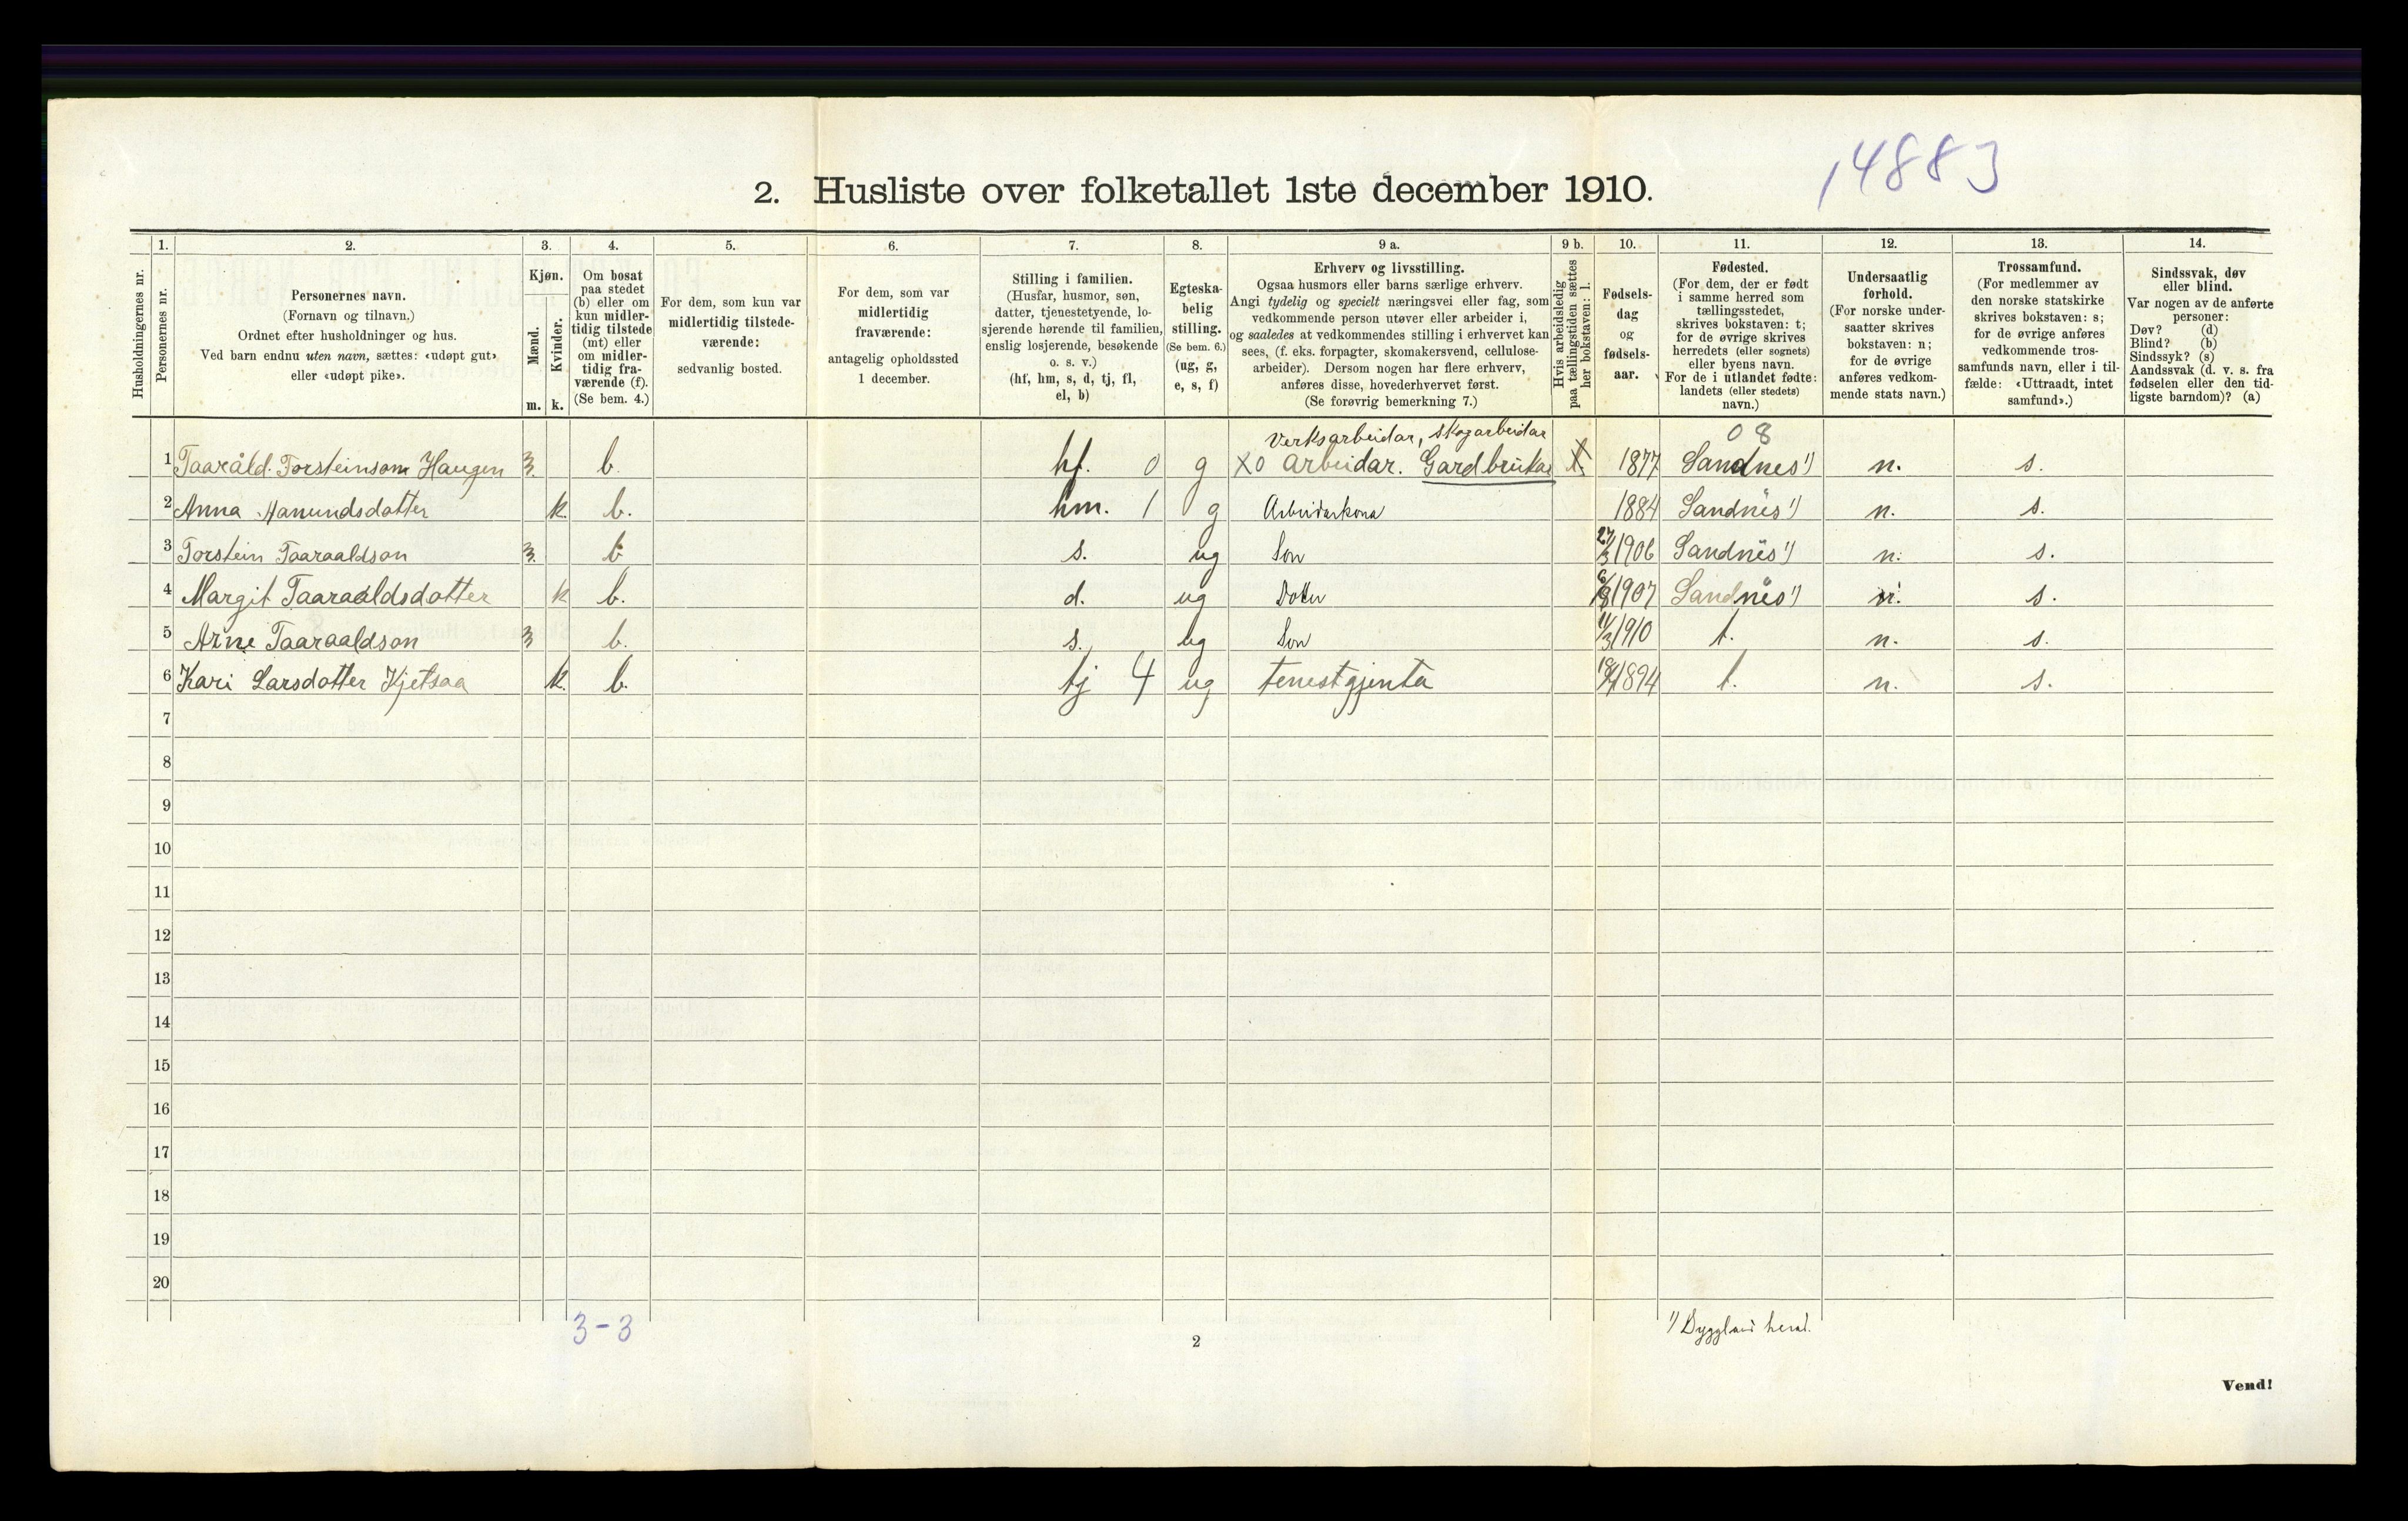 14883
2. Husliste over folketallet 1ste december 1910.
Husholdningernes nr.
1. Personernes nr.
2. Personernes navn.
(Fornavn og tilnavn.)
Ordnet efter husholdninger og hus.
Ved barn endnu uten navn, sættes: «udøpt gut»
eller «udøpt pike».
3. Kjøn.
Mænd. Kvinder.
m. k.
4. Om bosat
paa stedet
(b) eller om
kun midler-
tidig tilstede
(mt) eller
om midler-
tidig fra-
værende (f).
(Se bem. 4.)
5. For dem, som kun var
midlertidig tilstede-
værende:
sedvanlig bosted.
6. For dem, som var
midlertidig
fraværende:
antagelig opholdssted
1 december.
7. Stilling i familien.
(Husfar, husmor, søn,
datter, tjenestetyende, lo-
sjerende hørende til familien,
enslig losjerende, besøkende
o. s. v.)
(hf, hm, s, d, tj, fl,
el, b)
8. Egteska-
belig
stilling.
(Se bem. 6.)
(ug, g,
e, s, f)
9 a. Erhverv og livsstilling.
Ogsaa husmors eller barns særlige erhverv.
Angi tydelig og specielt næringsvei eller fag, som
vedkommende person utøver eller arbeider i,
og saaledes at vedkommendes stilling i erhvervet kan
sees, (f. eks. forpagter, skomakersvend, cellulose-
arbeider). Dersom nogen har flere erhverv,
anføres disse, hovederhvervet først.
(Se forøvrig bemerkning 7.)
9 b. Hvis arbeidsledig
paa tællingstiden sættes
her bokstaven: l.
10. Fødsels-
dag
og
fødsels-
aar.
11. Fødested.
(For dem, der er født
i samme herred som
tællingsstedet,
skrives bokstaven: t;
for de øvrige skrives
herredets (eller sognets)
eller byens navn.
For de i utlandet fødte:
landets (eller stedets)
navn.)
12. Undersaatlig
forhold.
(For norske under-
saatter skrives
bokstaven: n;
for de øvrige
anføres vedkom-
mende stats navn.)
13. Trossamfund.
(For medlemmer av
den norske statskirke
skrives bokstaven: s;
for de øvrige anføres
vedkommende tros-
samfunds navn, eller i til-
fælde: «Uttraadt, intet
samfund».)
14. Sindssvak, døv
eller blind.
Var nogen av de anførte
personer:
Døv? (d)
Blind? (b)
Sindssyk? (s)
Aandssvak (d. v. s. fra
fødselen eller den tid-
ligste barndom)? (a)
Verksarbeidar, skogarbeidar 08
1 Taaråld Torsteinson Haugen m b. hf. 0 g X0 arbeidar. Gardbrukar 1877 Sandnes 1) n. s.
2 Anna Hanundsdotter k. b. hm. 1 g Arbeidarkona 1884 Sandnes 1) n. s.
3 Torstein Taaraaldson m b s. ug Son 27/3 1906 Sandnes 1) n. s.
4 Margit Taaraaldsdotter k b. d. ug Dotter 1907 Sandnes 1) n. s.
5 Arne Taaraaldson m b. s. ug Son 11/3 1910 t. n. s.
6 Kari Larsdotter Kjetsaa k. b. tj 4 ug tenestgjenta 1894 t. n. s.
7
8
9
10
11
12
13
14
15
16
17
18
19
20
3-3
1) Bygland herad.
2
Vend!